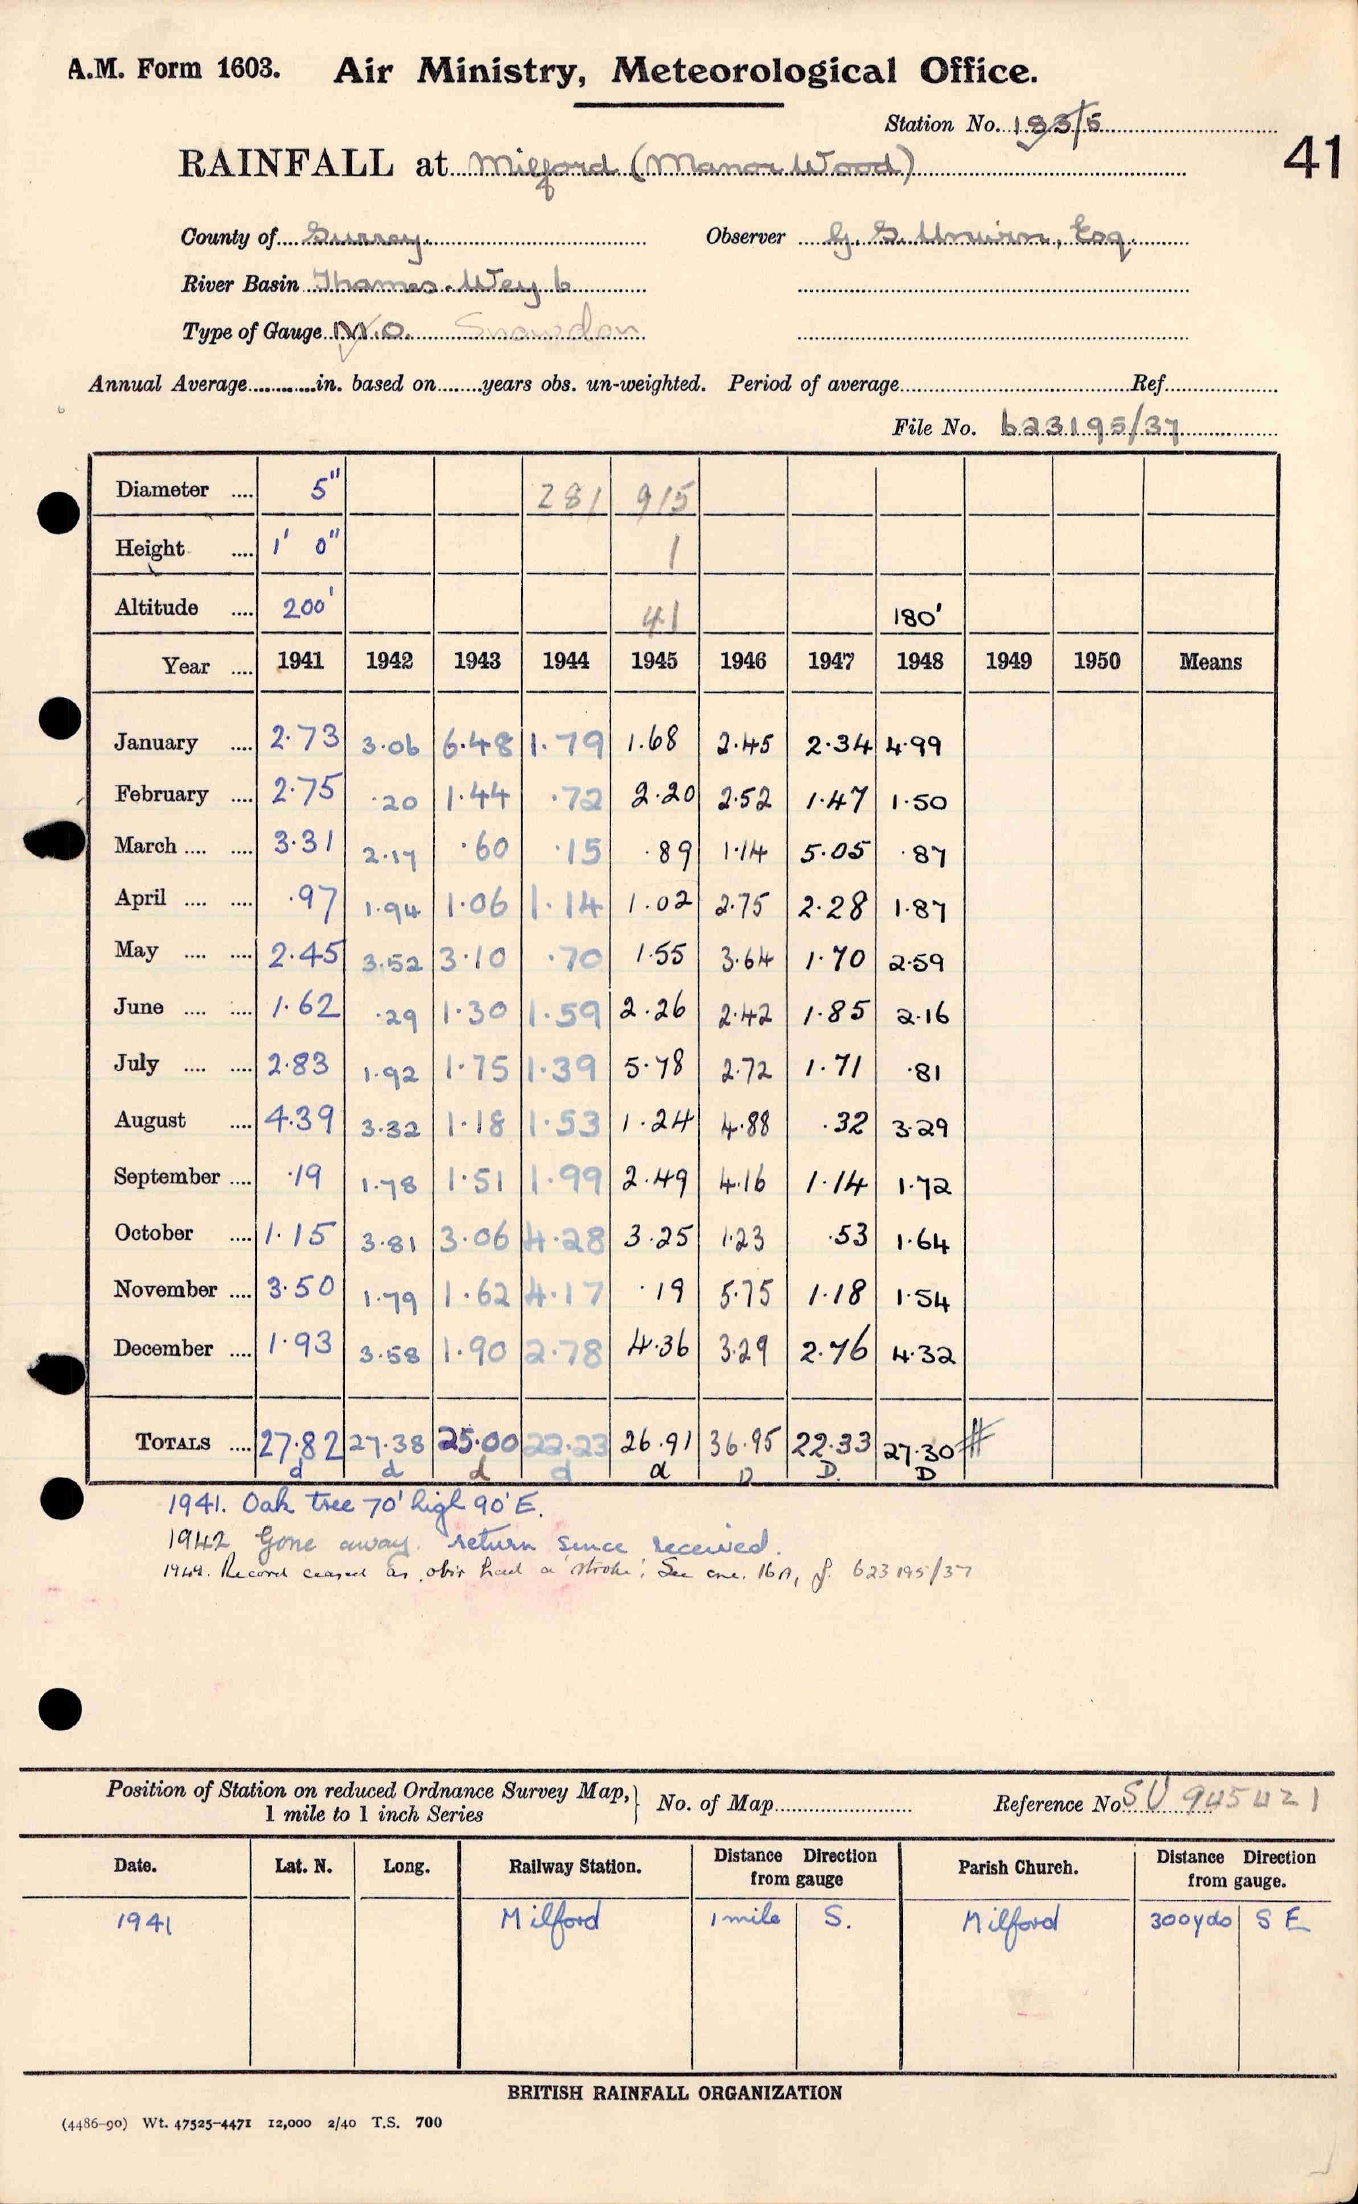 A.M. Form 1603. Air Ministry, Meteorological Office.
Station No. 183/5
41
RAINFALL at Milford (Manor Wood)
County of Surrey. Observer G. S. Unwin, Esq.
River Basin Thames. Wey 6
Type of Gauge M.O. Snowdon
Annual Average in. based on years obs. un-weighted. Period of average Ref.
File No. 623195/37
Diameter .... 5" 281 915
Height .... 1' 0" 1
Altitude .... 200' 41 180'
Year .... 1941 1942 1943 1944 1945 1946 1947 1948 1949 1950 Means
January .... 2.73 3.06 6.48 1.79 1.68 2.45 2.34 4.99
February .... 2.75 .20 1.44 .72 2.20 2.52 1.47 1.50
March .... .... 3.31 2.17 .60 .15 .89 1.14 5.05 .87
April .... .... .97 1.94 1.06 1.14 1.02 2.75 2.28 1.87
May .... .... 2.45 3.52 3.10 .70 1.55 3.64 1.70 2.59
June .... .... 1.62 .29 1.30 1.59 2.26 2.42 1.85 2.16
July .... .... 2.83 1.92 1.75 1.39 5.78 2.72 1.71 .81
August .... 4.39 3.32 1.18 1.53 1.24 4.88 .32 3.29
September .... .19 1.78 1.51 1.99 2.49 4.16 1.14 1.72
October .... 1.15 3.81 3.06 4.28 3.25 1.23 .53 1.64
November .... 3.50 1.79 1.62 4.17 .19 5.75 1.18 1.54
December .... 1.93 3.58 1.90 2.78 4.36 3.29 2.76 4.32
TOTALS .... 27.82 27.38 25.00 22.23 26.91 36.95 22.33 27.30 #
d d d d d D D. D
1941. Oak tree 70' high 90' E.
1942 Gone away. return since received.
1949. Record ceased as obsr had a 'stroke'. See enc. 16A, f. 623195/37
Position of Station on reduced Ordnance Survey Map, 1 mile to 1 inch Series } No. of Map Reference No. SU 945421
Date. Lat. N. Long. Railway Station. Distance Direction from gauge Parish Church. Distance Direction from gauge.
1941 Milford 1 mile S. Milford 300 yds S E
BRITISH RAINFALL ORGANIZATION
(4486-90) Wt. 47525-4471 12,000 2/40 T.S. 700